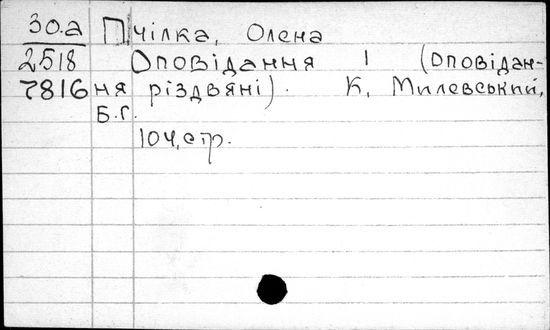 30.а Пчілка, Олена
2518 Оповідання І (оповідан-
7816 ня різдвяні). К, Милевський,
Б.Г.
104,стр.